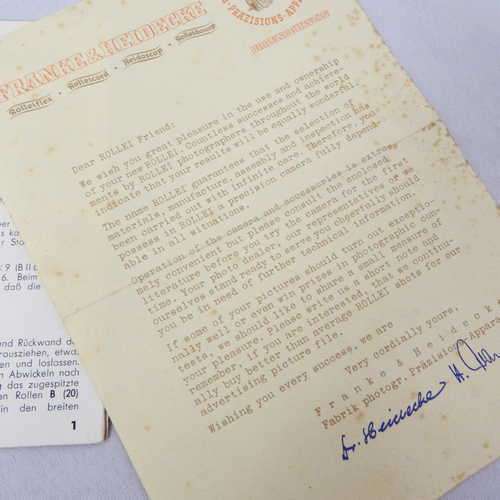 FRANKE & HEIDECKE
Rolleiflex · Rolleicord · Heidoscop · Rolleidoscop
PRÄZISIONS-APP
Dear ROLLEI Friend:
We wish you great pleasure in the use and ownership
of your new ROLLEI. Countless successes and achieve-
ments by ROLLEI photographers throughout the world
indicate that your results will be equally wonderful.
The name ROLLEI guarantees that the selection of
materials, manufacture, assembly and inspection has
been carried out with infinite care. Therefore, you
possess in ROLLEI a precision camera fully depend-
able in all situations.
Operation of the camera and accessories is extrem-
ely convenient but please consult the enclosed
literature before you try the camera for the first
time. Your photo dealer, our representatives or we
ourselves stand ready to serve you cheerfully should
you be in need of further technical information.
If some of your pictures should turn out exceptio-
nally well or even win prizes in photographic con-
tests, we should like to share a small measure of
your pleasure. Please write us a short note and
remember, if you are interested, that we continu-
ally buy better than average ROLLEI shots for our
advertising picture file.
Wishing you every success, we are
Very cordially yours,
Franke & Heideck
Fabrik photogr. Präzisions-Appara
Dr. Heinecke H.
:9 (B II
6. Beim
daß die
und Rückwand d
rausziehen, etwa
en und loslassen.
Abwickeln nach
g das zugespitzte
en Rollen B (20)
in den breiten
1